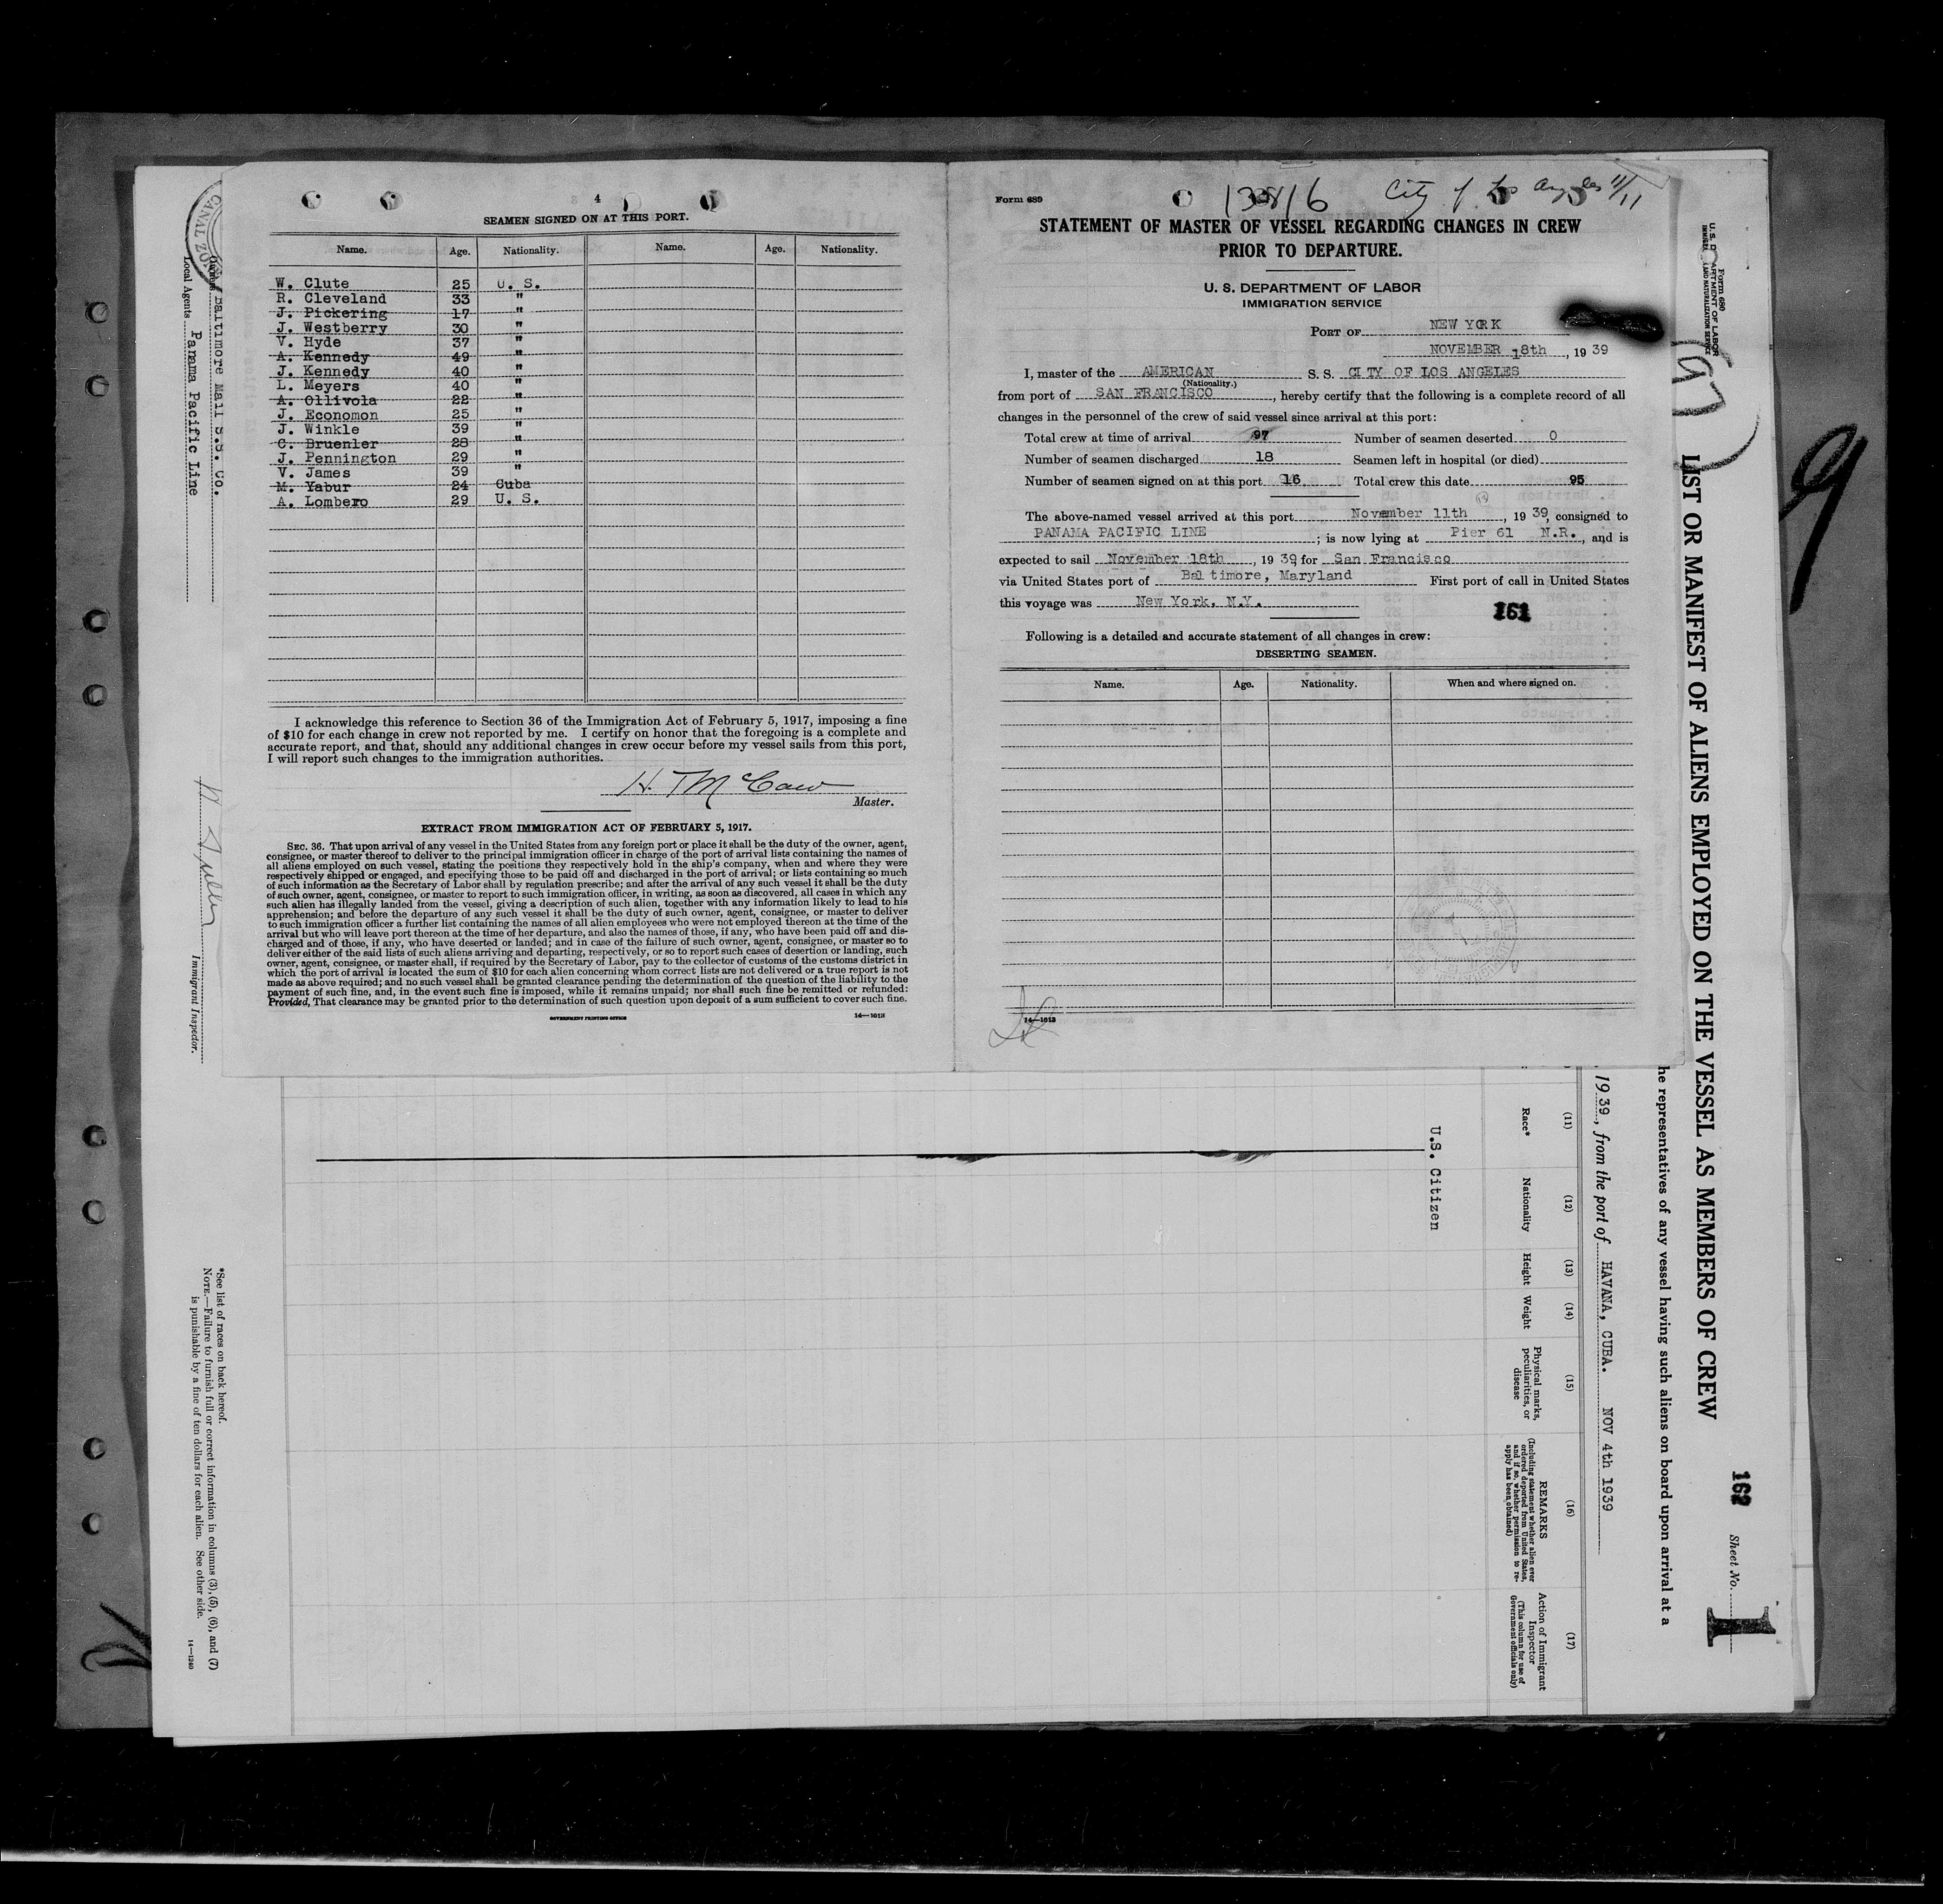 4
SEAMEN SIGNED ON AT THIS PORT.
Name. Age. Nationality. Name. Age. Nationality.
W. Clute 25 U. S.
R. Cleveland 33 "
J. Pickering 17 "
J. Westberry 30 "
V. Hyde 37 "
A. Kennedy 49 "
J. Kennedy 40 "
L. Meyers 40 "
A. Ollivola 22 "
J. Economon 25 "
J. Winkle 39 "
C. Bruenler 28 "
J. Pennington 29 "
V. James 39 "
M. Yabur 24 Cuba
A. Lombero 29 U. S.
I acknowledge this reference to Section 36 of the Immigration Act of February 5, 1917, imposing a fine
of $10 for each change in crew not reported by me. I certify on honor that the foregoing is a complete and
accurate report, and that, should any additional changes in crew occur before my vessel sails from this port,
I will report such changes to the immigration authorities.
H. T McCaw
Master.
EXTRACT FROM IMMIGRATION ACT OF FEBRUARY 5, 1917.
SEC. 36. That upon arrival of any vessel in the United States from any foreign port or place it shall be the duty of the owner, agent,
consignee, or master thereof to deliver to the principal immigration officer in charge of the port of arrival lists containing the names of
all aliens employed on such vessel, stating the positions they respectively hold in the ship's company, when and where they were
respectively shipped or engaged, and specifying those to be paid off and discharged in the port of arrival; or lists containing so much
of such information as the Secretary of Labor shall by regulation prescribe; and after the arrival of any such vessel it shall be the duty
of such owner, agent, consignee, or master to report to such immigration officer, in writing, as soon as discovered, all cases in which any
such alien has illegally landed from the vessel, giving a description of such alien, together with any information likely to lead to his
apprehension; and before the departure of any such vessel it shall be the duty of such owner, agent, consignee, or master to deliver
to such immigration officer a further list containing the names of all alien employees who were not employed thereon at the time of the
arrival but who will leave port thereon at the time of her departure, and also the names of those, if any, who have been paid off and dis-
charged and of those, if any, who have deserted or landed; and in case of the failure of such owner, agent, consignee, or master so to
deliver either of the said lists of such aliens arriving and departing, respectively, or so to report such cases of desertion or landing, such
owner, agent, consignee, or master shall, if required by the Secretary of Labor, pay to the collector of customs of the customs district in
which the port of arrival is located the sum of $10 for each alien concerning whom correct lists are not delivered or a true report is not
made as above required; and no such vessel shall be granted clearance pending the determination of the question of the liability to the
payment of such fine, and, in the event such fine is imposed, while it remains unpaid; nor shall such fine be remitted or refunded:
Provided, That clearance may be granted prior to the determination of such question upon deposit of a sum sufficient to cover such fine.
GOVERNMENT PRINTING OFFICE 14—1013
Form 689
13816 City of Los Angeles 11/11
STATEMENT OF MASTER OF VESSEL REGARDING CHANGES IN CREW
PRIOR TO DEPARTURE.
U. S. DEPARTMENT OF LABOR
IMMIGRATION SERVICE
PORT OF NEW YORK
NOVEMBER 18th, 1939
I, master of the AMERICAN S. S. CITY OF LOS ANGELES
(Nationality.)
from port of SAN FRANCISCO, hereby certify that the following is a complete record of all
changes in the personnel of the crew of said vessel since arrival at this port:
Total crew at time of arrival 97 Number of seamen deserted 0
Number of seamen discharged 18 Seamen left in hospital (or died)
Number of seamen signed on at this port 16 Total crew this date 95
The above-named vessel arrived at this port November 11th, 1939, consigned to
PANAMA PACIFIC LINE; is now lying at Pier 61 N.R., and is
expected to sail November 18th, 1939, for San Francisco
via United States port of Baltimore, Maryland First port of call in United States
this voyage was New York, N.Y.
161
Following is a detailed and accurate statement of all changes in crew:
DESERTING SEAMEN.
Name. Age. Nationality. When and where signed on.
14—1013
Form 680
U. S. DEPARTMENT OF LABOR
LIST OR MANIFEST OF ALIENS EMPLOYED ON THE VESSEL AS MEMBERS OF CREW
162
Sheet No. 1
he representatives of any vessel having such aliens on board upon arrival at a
, 1939, from the port of HAVANA, CUBA. NOV 4th 1939
(11) (12) (13) (14) (15) (16) (17)
Race*
Nationality
Height
Weight
Physical marks, peculiarities, or disease
REMARKS
(Including statement whether alien ever ordered deported from United States, and if so, whether permission to re-apply has been obtained)
Action of Immigrant Inspector
(This column for use of Government officials only)
U.S. Citizen
CANAL ZONE
Baltimore Mail S.S. Co.
Local Agents Panama Pacific Line
Immigrant Inspector.
*See list of races on back hereof.
NOTE.—Failure to furnish full or correct information in columns (3), (5), (6), and (7)
is punishable by a fine of ten dollars for each alien. See other side.
14—1240
9